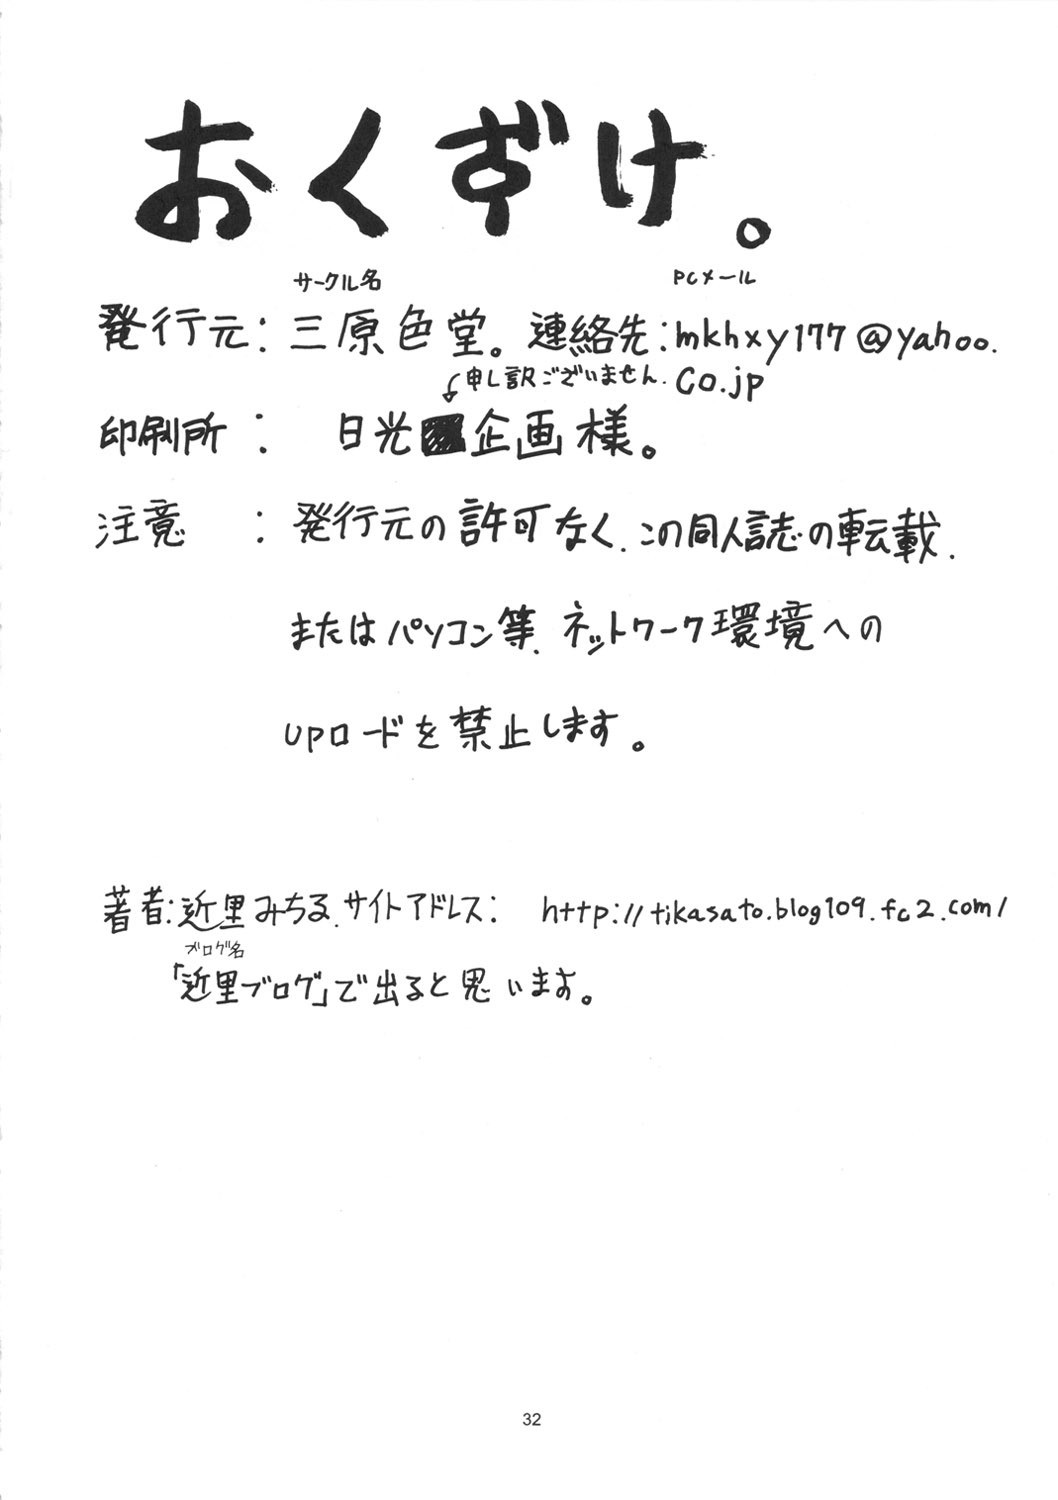 おくずけ。
サークル名 PCメール
発行元：三原色堂。連絡先：mkhxy177@yahoo.
申し訳ございません. co.jp
印刷所： 日光企画様。
注意 ：発行元の許可なく、この同人誌の転載、
またはパソコン等、ネットワーク環境への
upロードを禁止します。
著者：近里みちる、サイトアドレス： http://tikasato.blog109.fc2.com/
ブログ名
「近里ブログ」で出ると思います。
32